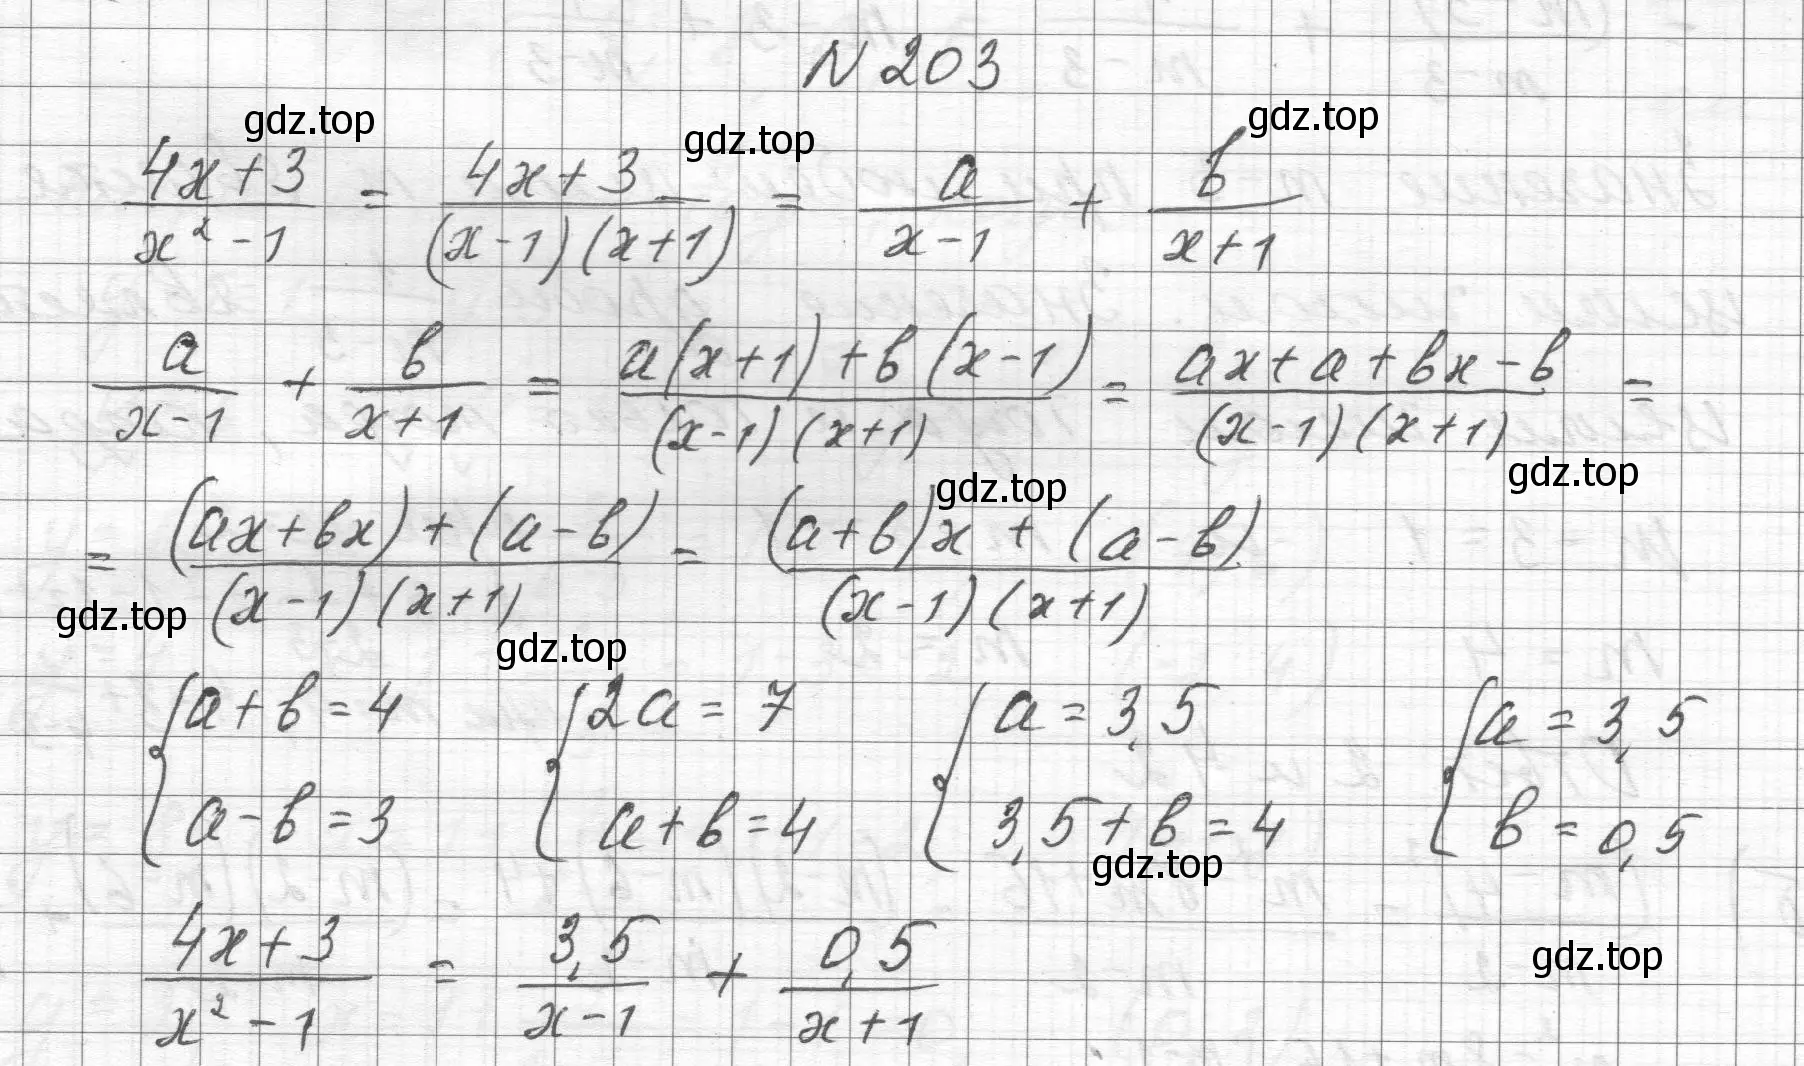 N 203
gdz.top gdz.top gdz.top
(4x+3)/(x² - 1) = (4x+3)/((x-1)(x+1)) = a/(x-1) + b/(x+1)
a/(x-1) + b/(x+1) = (a(x+1)+b(x-1))/((x-1)(x+1)) = (ax+a+bx-b)/((x-1)(x+1)) =
gdz.top gdz.top
= ((ax+bx)+(a-b))/((x-1)(x+1)) = ((a+b)x+(a-b))/((x-1)(x+1))
gdz.top gdz.top
{a+b=4 {2a=7 {a=3,5 {a=3,5
a-b=3 a+b=4 3,5+b=4 b=0,5
gdz.top
(4x+3)/(x²-1) = 3,5/(x-1) + 0,5/(x+1)
gdz.top